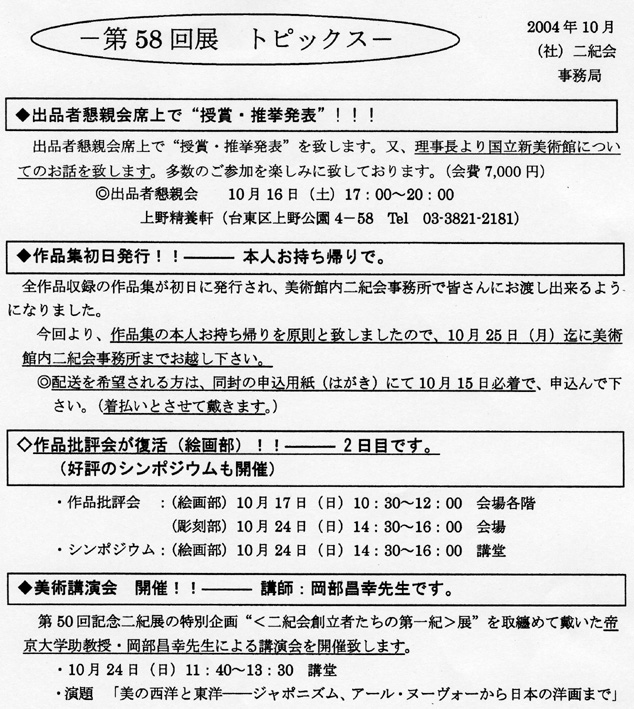 －第 58 回展　トピックス－
2004 年 10 月
（社）二紀会
事務局
◆出品者懇親会席上で“授賞・推挙発表”！！！
出品者懇親会席上で“授賞・推挙発表”を致します。又、理事長より国立新美術館につい
てのお話を致します。多数のご参加を楽しみに致しております。（会費 7,000 円）
◎出品者懇親会　10 月 16 日（土）17：00～20：00
上野精養軒（台東区上野公園 4－58　Tel　03-3821-2181）
◆作品集初日発行！！――― 本人お持ち帰りで。
全作品収録の作品集が初日に発行され、美術館内二紀会事務所で皆さんにお渡し出来るよう
になりました。
今回より、作品集の本人お持ち帰りを原則と致しましたので、10 月 25 日（月）迄に美術
館内二紀会事務所までお越し下さい。
◎配送を希望される方は、同封の申込用紙（はがき）にて 10 月 15 日必着で、申込んで下
さい。（着払いとさせて戴きます。）
◇作品批評会が復活（絵画部）！！――― 2日目です。
（好評のシンポジウムも開催）
・作品批評会　：（絵画部）10 月 17 日（日）10：30～12：00　会場各階
（彫刻部）10 月 24 日（日）14：30～16：00　会場
・シンポジウム：（絵画部）10 月 24 日（日）14：30～16：00　講堂
◆美術講演会　開催！！――― 講師：岡部昌幸先生です。
第 50 回記念二紀展の特別企画“＜二紀会創立者たちの第一紀＞展”を取纏めて戴いた帝
京大学助教授・岡部昌幸先生による講演会を開催致します。
・10 月 24 日（日）11：40～13：30　講堂
・演題　「美の西洋と東洋――ジャポニズム、アール・ヌーヴォーから日本の洋画まで」